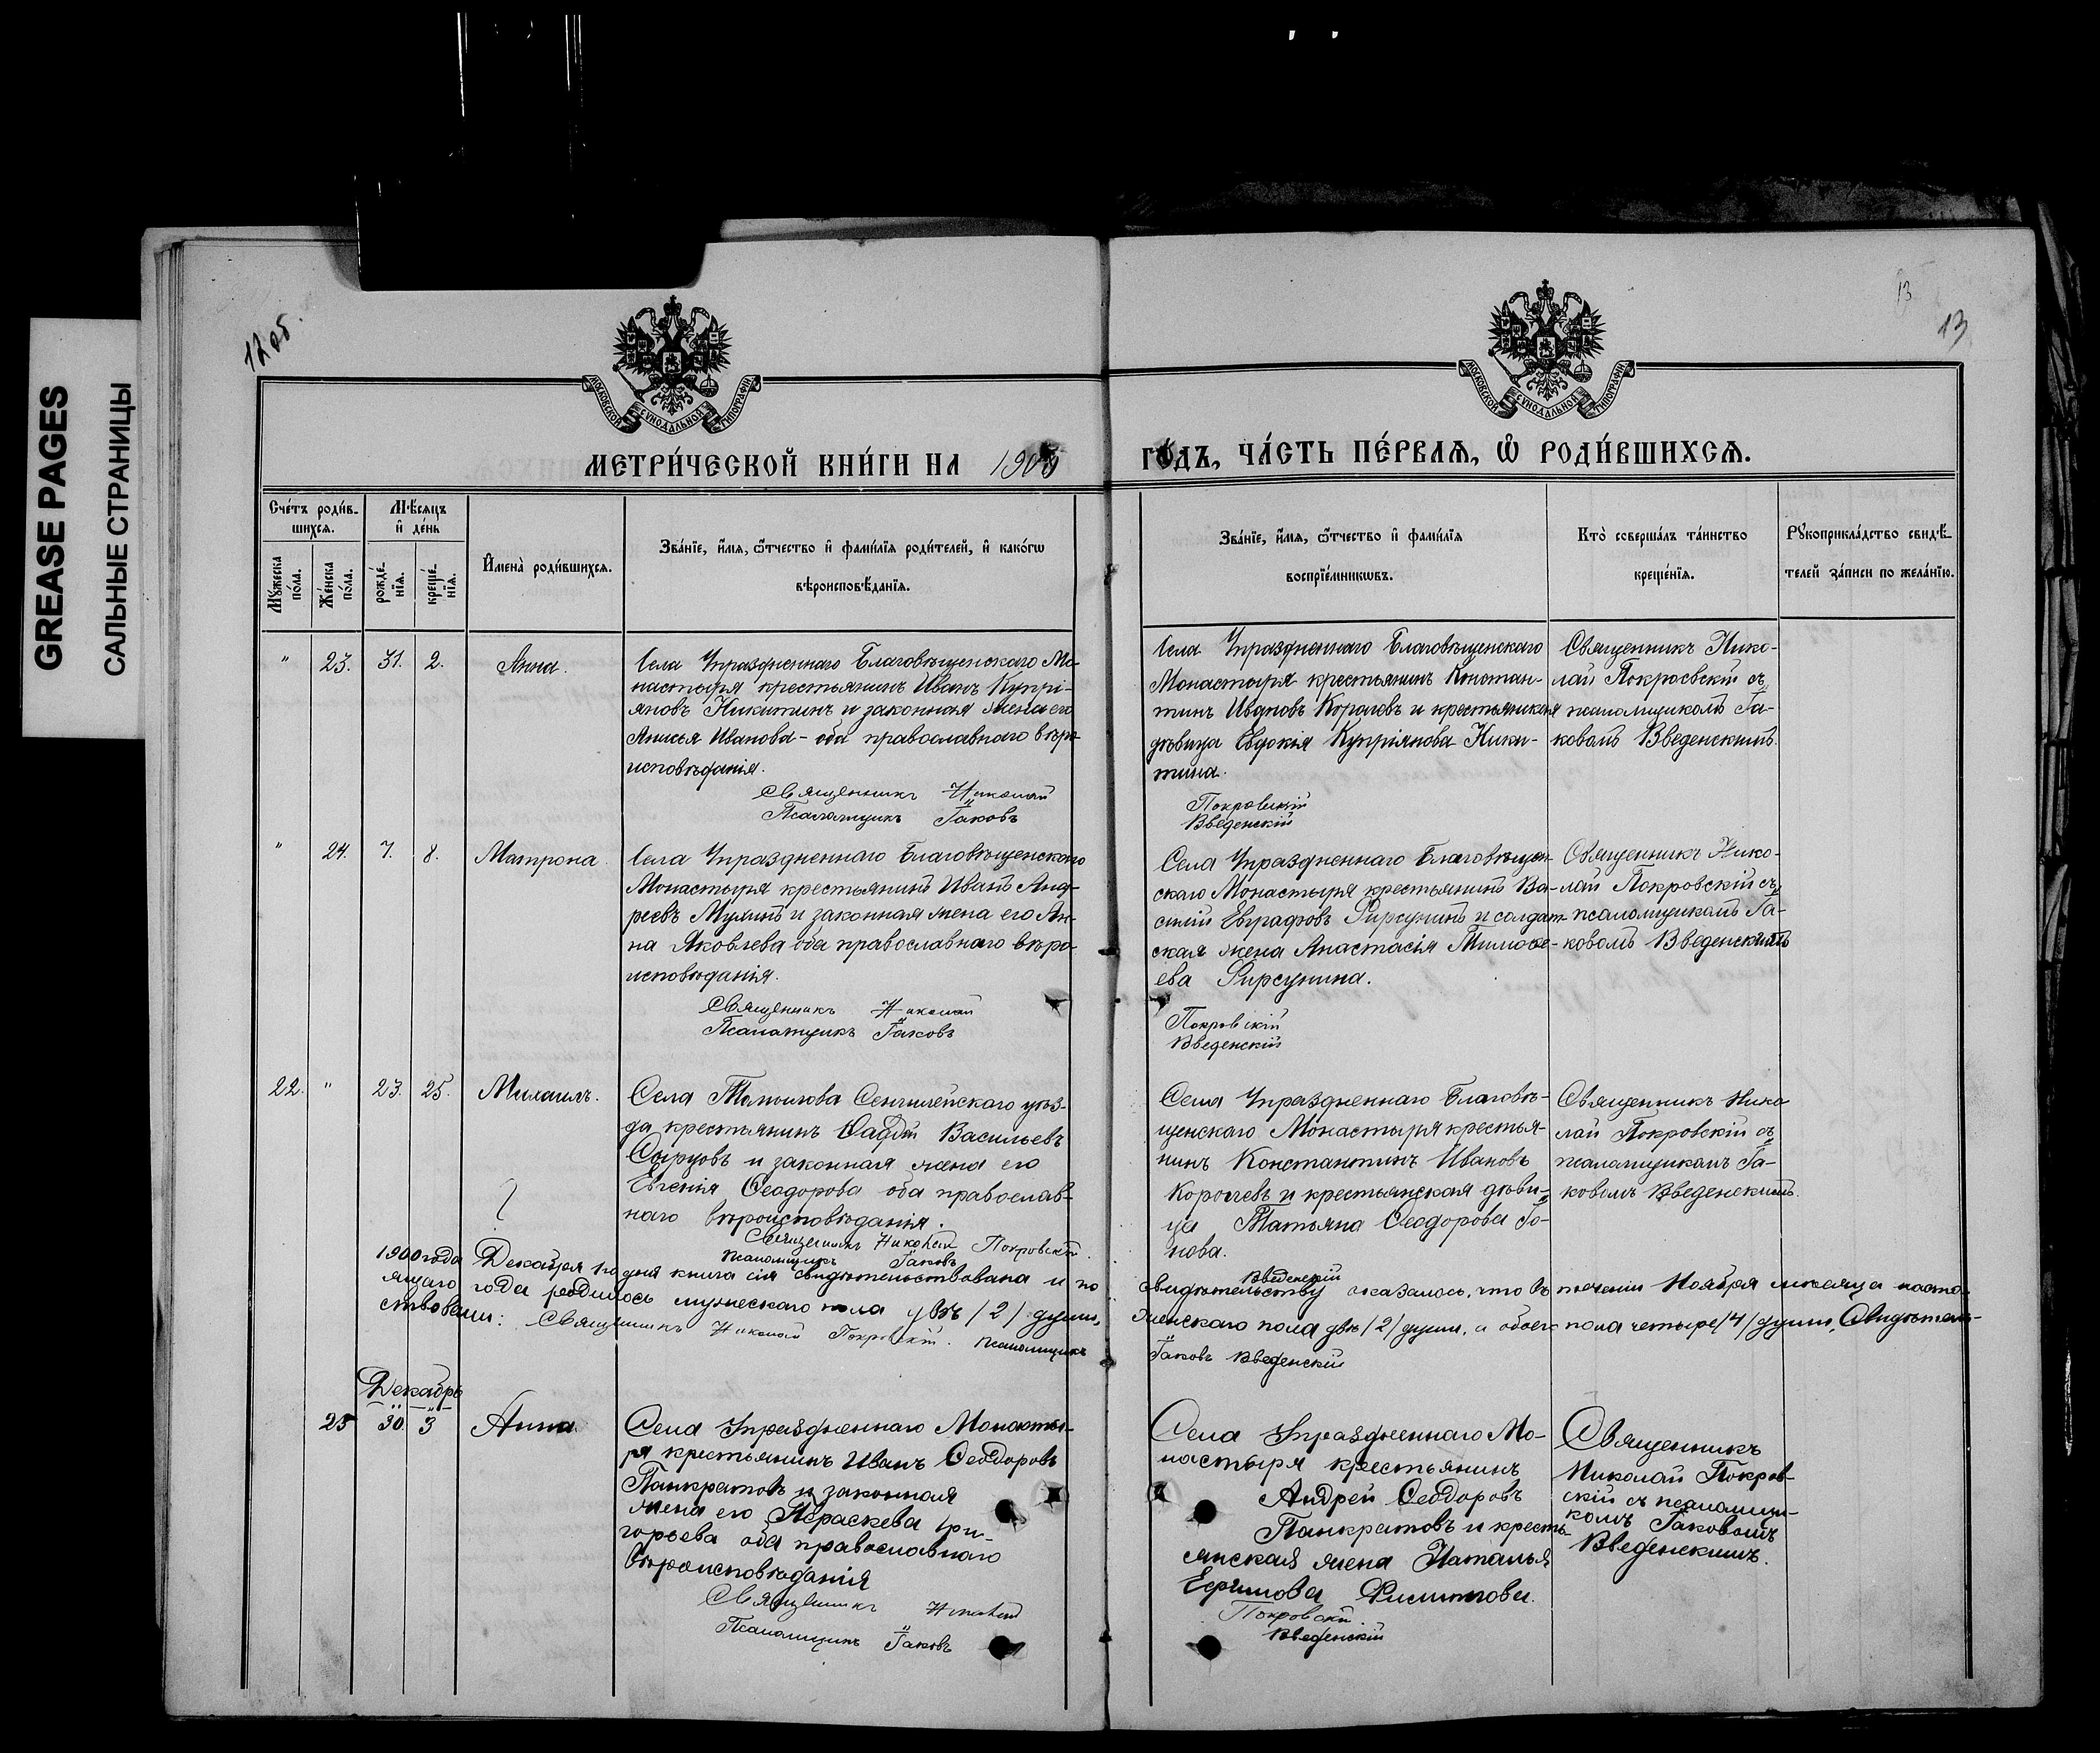 GREASE PAGES
САЛЬНЫЕ СТРАНИЦЫ
12 об.
13
13
МОСКОВСКОЙ СУНОДАЛЬНОЙ ТИПОГРАФІИ
МОСКОВСКОЙ СУНОДАЛЬНОЙ ТИПОГРАФІИ
МЕТРИ́ЧЕСКОЙ КНИ́ГИ НА 1900 ГО́ДЪ, ЧА́СТЬ ПЕ́РВАѦ, Ѡ҆ РОДИ́ВШИХСѦ.
Сче́тъ роди́в-
шихсѧ.
Мꙋ́жеска по́ла.
Же́нска по́ла.
М́ѣсѧцъ
и҆ де́нь
рожде́-
нїѧ.
креще́-
нїѧ.
И҆мена̀ роди́вшихсѧ.
Зва́нїе, и҆́мѧ, ѻ҆́тчество и҆ фами́лїѧ роди́телей, и҆ како́гѡ
вѣроисповѣ́данїѧ.
Зва́нїе, и҆́мѧ, ѻ҆́тчество и҆ фами́лїѧ
воспрїе́мникѡвъ.
Кто̀ соверша́лъ та́инство
креще́нїѧ.
Рꙋкоприкла́дство свидѣ́-
телей за́писи по жела́нїю.
" 23. 31. 2. Анна.
Села Упраздненнаго Благовѣщенскаго Мо-
настыря крестьянинъ Иванъ Купрі-
яновъ Никитинъ и законная жена его
Анисья Иванова - оба православнаго вѣро-
исповѣданія.
Священникъ Николай
Псаломщикъ Іаковъ
Села Упраздненнаго Благовѣщенскаго
Монастыря крестьянинъ Констан-
тинъ Ивановъ и крестьянская
дѣвица Евдокія Купріянова Ники-
тина.
Покровскій
Введенскій
Священникъ Нико-
лай Покровскій съ
псаломщикомъ Іа-
ковомъ Введенскимъ.
" 24. 7. 8. Матрона.
Села Упраздненнаго Благовѣщенскаго
Монастыря крестьянинъ Иванъ Анд-
реевъ и законная жена его Ан-
на Яковлева оба православнаго вѣро-
исповѣданія.
Священникъ Николай
Псаломщикъ Іаковъ
Села Упраздненнаго Благовѣщен-
скаго Монастыря крестьянинъ Ва-
силій Евграфовъ Фирсунинъ и солдат-
ская жена Анастасія Тимофе-
ева Фирсунина.
Покровскій
Введенскій
Священникъ Нико-
лай Покровскій съ
псаломщикомъ Іа-
ковомъ Введенскимъ
22. " 23. 25. Михаилъ.
Села Томылова Сенгилейскаго уѣз-
да крестьянинъ Васильевъ
Сырцовъ и законная жена его
Евгенія Ѳеодорова оба православ-
наго вѣроисповѣданія.
Священникъ Николай Покровскій.
Псаломщикъ Іаковъ
Введенскій
Села Упраздненнаго Благовѣ-
щенскаго Монастыря крестья-
нинъ Константинъ Ивановъ
и крестьянская дѣви-
ца Татьяна Ѳеодорова
Священникъ Нико-
лай Покровскій съ
псаломщикомъ Іа-
ковомъ Введенскимъ.
1900 года Декабря 1го дня книга сія свидѣтельствована и по свидѣтельству оказалось, что въ теченіи Ноября мѣсяца насто-
ящаго года родилось мужескаго пола двѣ /2/ души, женскаго пола двѣ /2/ души, а обоего пола четыре /4/ души. Свидѣтель-
ствовали: Священникъ Николай Покровскій. Псаломщикъ Іаковъ Введенскій
Декабрь
25 30. 3 Анна.
Села Упраздненнаго Монасты-
ря крестьянинъ Иванъ Ѳеодоровъ
Панкратовъ и законная
жена его Параскева Гри-
горьева оба православнаго
вѣроисповѣданія
Священникъ Николай
Псаломщикъ Іаковъ
Села Упраздненнаго Мо-
настыря крестьянинъ
Андрей Ѳеодоровъ
Панкратовъ и кресть-
янская жена Наталья
Ефимова Филиппова.
Покровскій.
Введенскій
Священникъ
Николай Покров-
скій съ псаломщи-
комъ Іаковомъ
Введенскимъ.